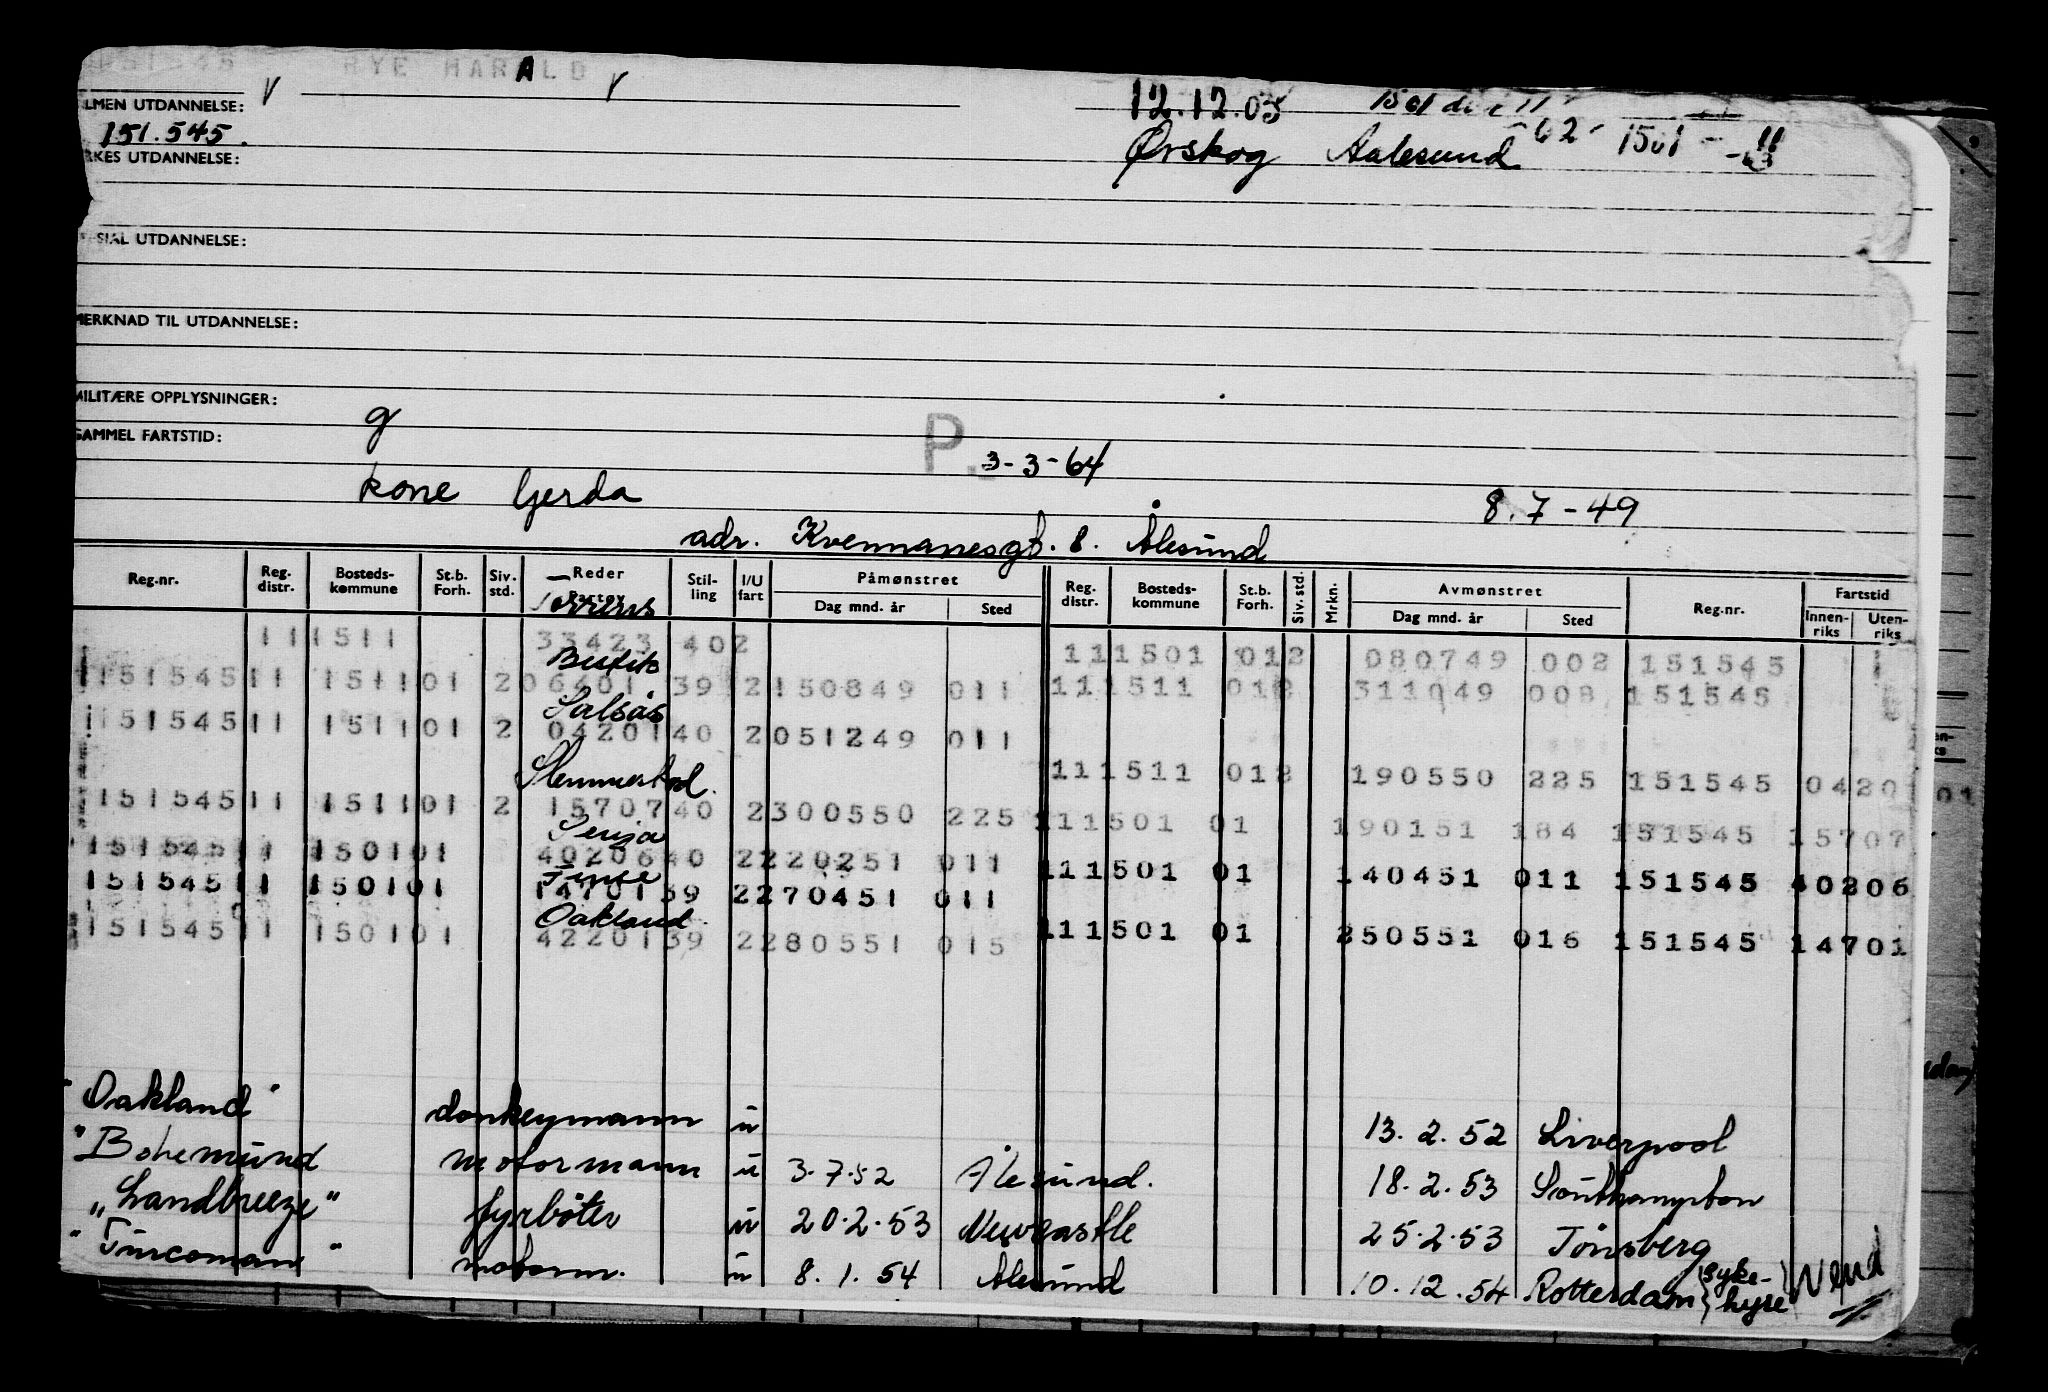 151545 RYE HARALD
LMEN UTDANNELSE: 12.12.05 1501
151.545. Ørskog Aalesund 62 1501 - 11
RKES UTDANNELSE: -63
SIAL UTDANNELSE:
MERKNAD TIL UTDANNELSE:
MILITÆRE OPPLYSNINGER: g
SAMMEL FARTSTID: P. 3-3-64
kone Gerda 8.7-49
adr. Kvennanesgt. 8. Ålesund
Reg.nr. Reg. distr. Bosteds-kommune St.b. Forh. Siv. std. Reder Fartøy Stil-ling I/U fart Påmønstret Dag mnd. år Sted Reg. distr. Bosteds-kommune St.b. Forh. Siv. std. Mrkn. Avmønstret Dag mnd. år Sted Reg.nr. Fartstid Innen-riks Uten-riks
Torrens
11 1511 33423 402 111501 012 080749 002 151545
151545 11 151101 2 06401 39 2150849 011 111511 012 311049 008 151545
Salsås
151545 11 151101 2 04201 40 2051249 011
Slemmestad. 111511 012 190550 225 151545 0420
151545 11 151101 2 15707 40 2300550 225 111501 01 190151 184 151545 15707
Senja
151545 11 150101 40206 40 2220251 011 111501 01 140451 011 151545 40206
151545 11 150101 14701 39 2270451 011
Oakland 111501 01 250551 016 151545 14701
151545 11 150101 42201 39 2280551 015
"Oakland" donkeymann u 13. 2. 52 Liverpool
"Bohemund motormann u 3.7.52 Ålesund. 18. 2. 53 Southampton
"Landbreeze" fyrbøter u 20.2.53 Newcastle 25.2.53 Tønsberg
"Turcoman" motorm. u 8. 1. 54 Ålesund 10. 12. 54 Rotterdam syke-hyre Vend